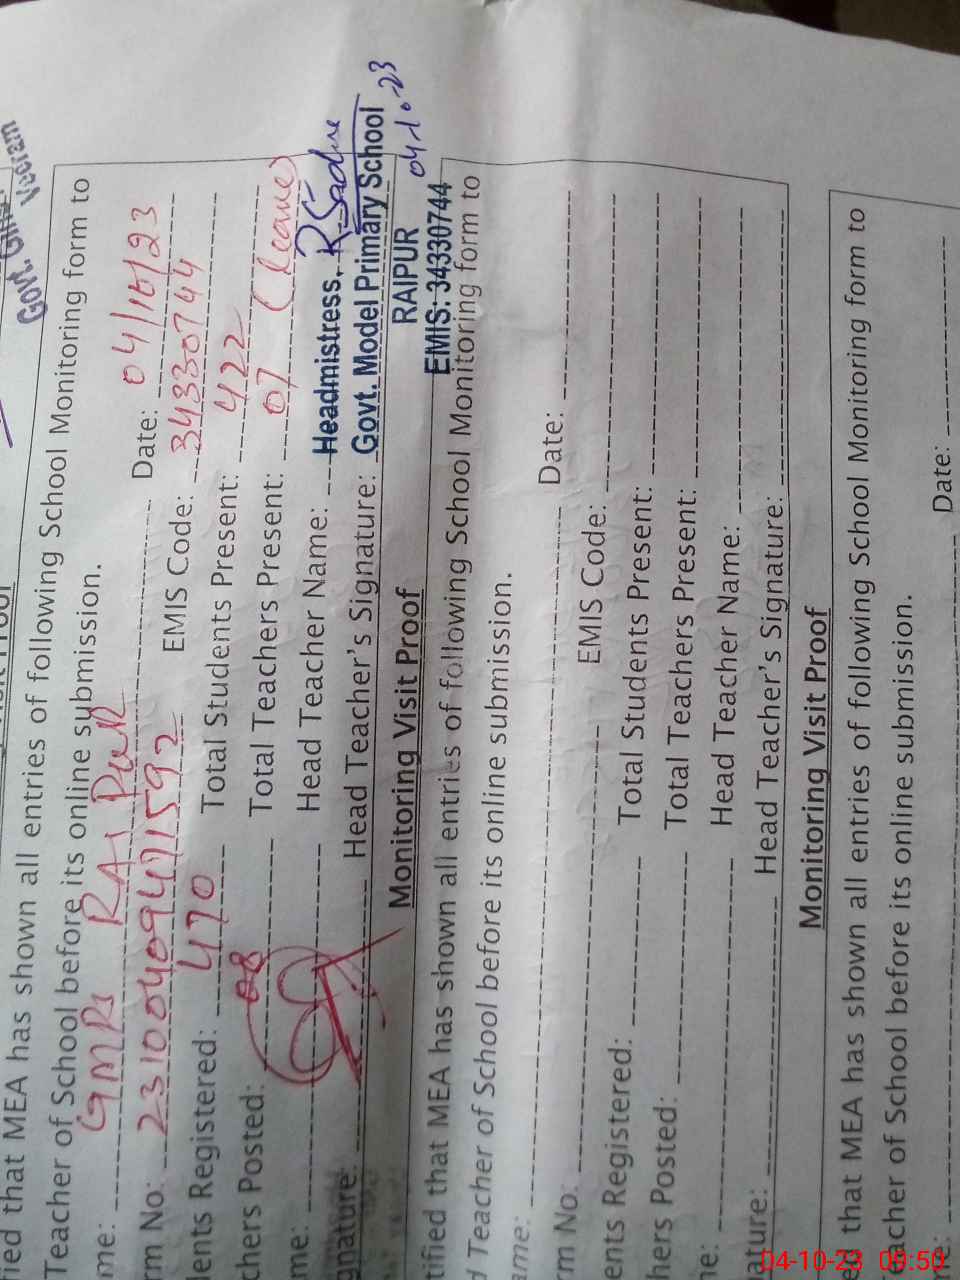 Govt. Girls
ified that MEA has shown all entries of following School Monitoring form to
Teacher of School before its online submission.
me: GMPS RAIPUR Date: 04/10/23
rm No: EMIS Code: 34330744
dents Registered: 470 Total Students Present: 422
chers Posted: 08 Total Teachers Present: 07 (leave)
me: Head Teacher Name: Headmistress.
gnature: Head Teacher's Signature: Govt. Model Primary School
RAIPUR 04-10-23
EMIS: 34330744
Monitoring Visit Proof
tified that MEA has shown all entries of following School Monitoring form to
d Teacher of School before its online submission.
ame: Date:
rm No: EMIS Code:
ents Registered: Total Students Present:
hers Posted: Total Teachers Present:
ne: Head Teacher Name:
ature: Head Teacher's Signature:
Monitoring Visit Proof
d that MEA has shown all entries of following School Monitoring form to
eacher of School before its online submission.
Date:
04-10-23 09:50